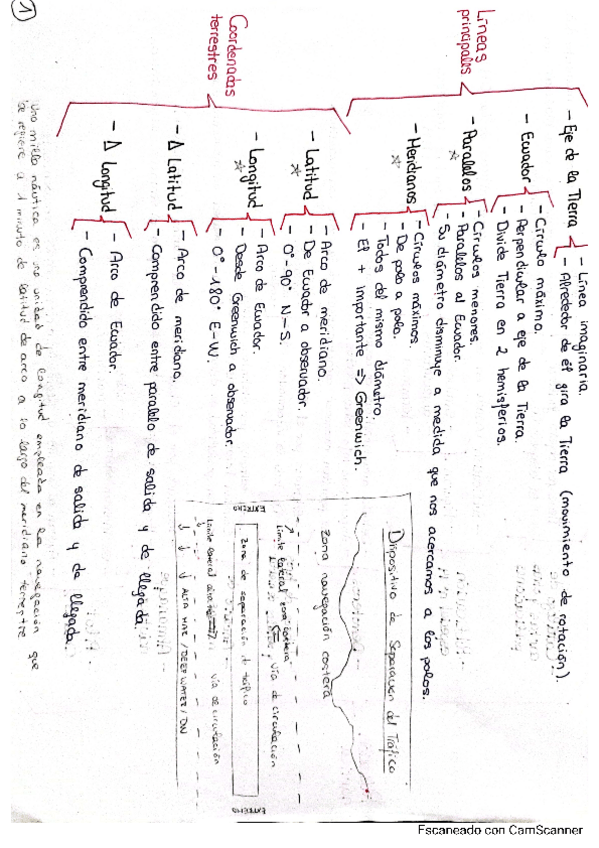 1
Líneas
principales
- Eje de la Tierra
- Línea imaginaria.
- Alrededor de él gira la Tierra (movimiento de rotación).
- Ecuador
- Círculo máximo.
- Perpendicular a eje de la Tierra.
- Divide Tierra en 2 hemisferios.
- Paralelos
- Círculos menores.
- Paralelos al Ecuador.
- Su diámetro disminuye a medida que nos acercamos a los polos.
- Meridianos
- Círculos máximos.
- De polo a polo.
- Todos del mismo diámetro.
- El + importante => Greenwich.
Coordenadas
terrestres
- Latitud
- Arco de meridiano.
- De Ecuador a observador.
- 0° - 90° N - S.
- Longitud
- Arco de Ecuador.
- Desde Greenwich a observador.
- 0° - 180° E - W.
- Δ Latitud
- Arco de meridiano.
- Comprendido entre paralelo de salida y de llegada.
- Δ Longitud
- Arco de Ecuador.
- Comprendido entre meridiano de salida y de llegada.
Una milla náutica es una unidad de longitud empleada en la navegación que
se refiere a 1 minuto de latitud de arco a lo largo del meridiano terrestre
Dispositivo de Separación del Tráfico
zona navegación costera
Límite lateral zona costera
vía de circulación
EXTREMO
zona de separación de tráfico
EXTREMO
Límite lateral
vía de circulación
ALTA MAR / DEEP WATER / DW
Escaneado con CamScanner